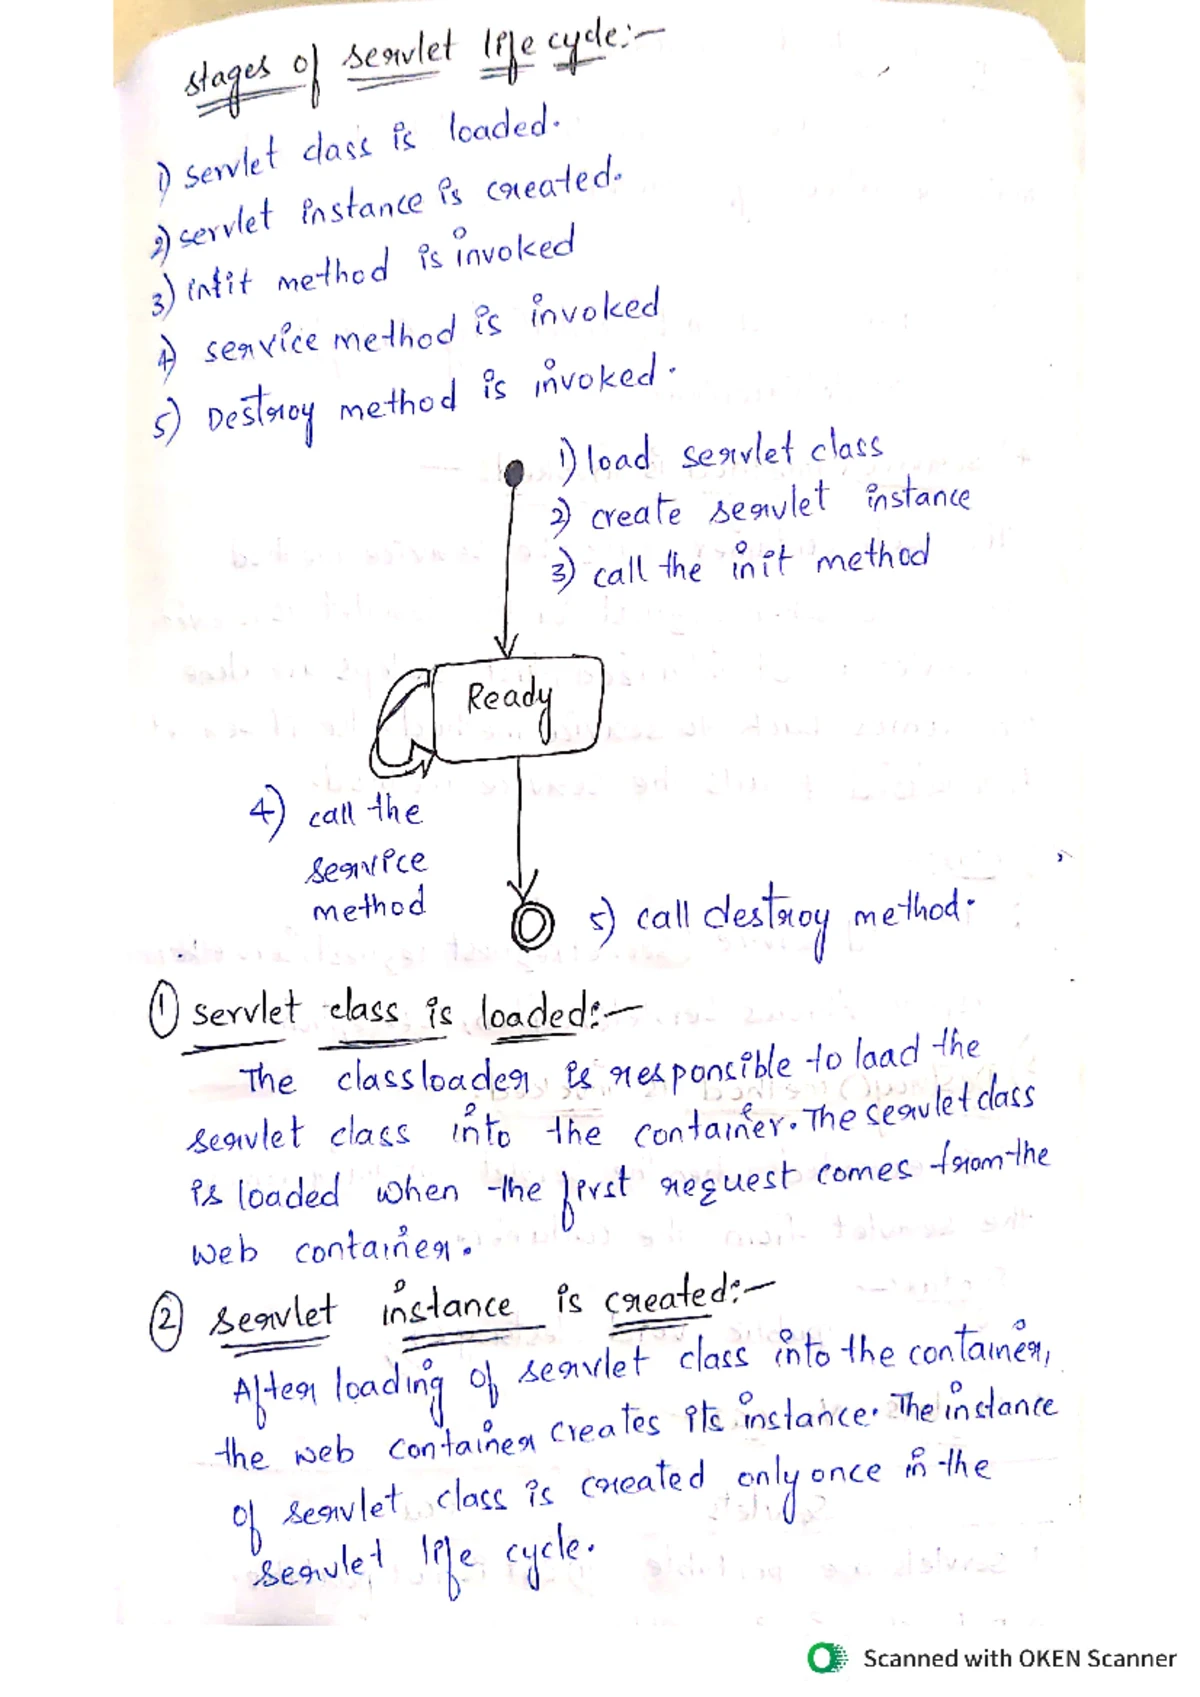 stages of servlet life cycle:-
1) servlet class is loaded.
2) servlet instance is created.
3) intit method is invoked
4) service method is invoked
5) Destroy method is invoked.
1) load servlet class
2) create servlet instance
3) call the init method
Ready
4) call the
service
method
5) call destroy method.
① servlet class is loaded:-
The classloader is responsible to laad the
servlet class into the container. The servlet class
is loaded when the first request comes from the
web container.
② servlet instance is created:-
After loading of servlet class into the container,
the web container creates its instance. The instance
of servlet class is created only once in the
servlet life cycle.
Scanned with OKEN Scanner